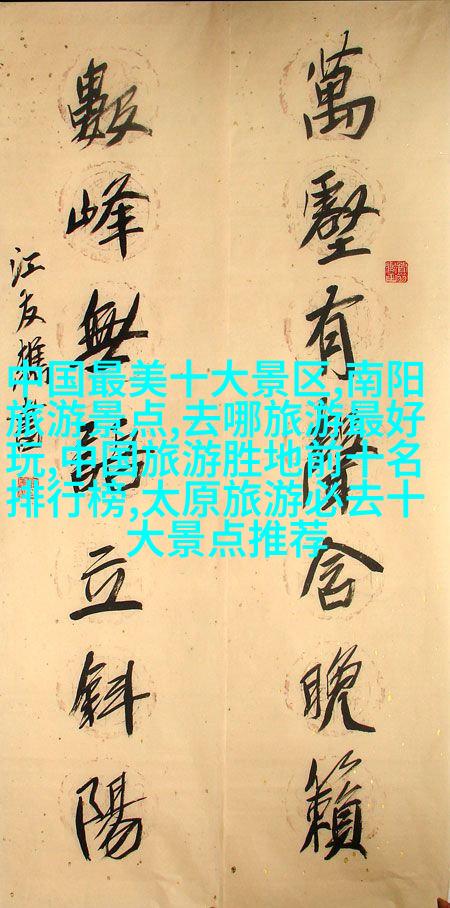 萬壑有聲含晚籟
數峰無語立斜陽
江友樵
中国最美十大景区,南阳
旅游景点,去哪旅游最好
玩,中国旅游胜地前十名
排行榜,太原旅游必去十
大景点推荐